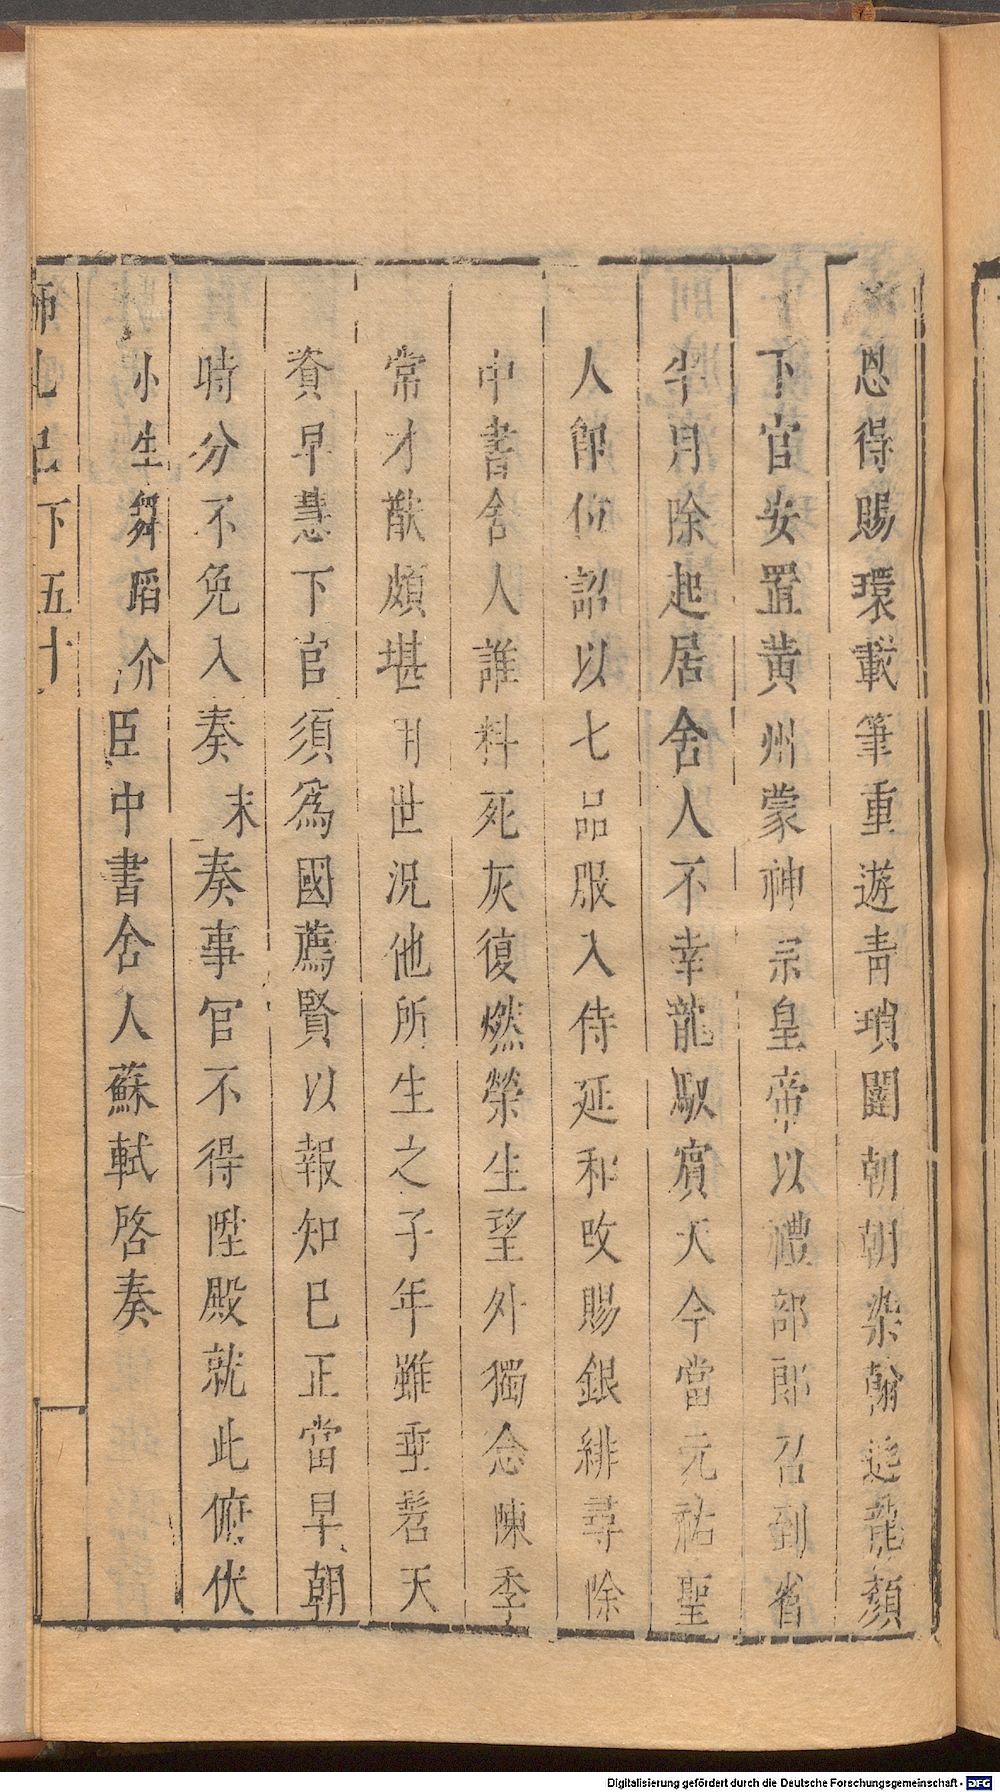 恩得賜環載筆重遊青瑣闥朝朝染翰近龍顏
下官安置黃州蒙神宗皇帝以禮部郎召到省
半月除起居舍人不幸龍馭賓天今當元祐聖
人卽位詔以七品服入侍延和改賜銀緋尋除
中書舍人誰料死灰復燃榮生望外獨念陳季
常才猷頗堪用世況他所生之子年雖垂髫天
資早慧下官須爲國薦賢以報知已正當早朝
時分不免入奏末奏事官不得陞殿就此俯伏
小生舞蹈介臣中書舍人蘇軾啓奏
師吼記下五十
Digitalisierung gefördert durch die Deutsche Forschungsgemeinschaft - DFG